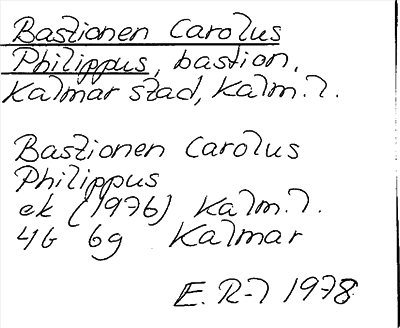 Bastionen Carolus
Philippus, bastion.
Kalmar stad, Kalm. l.
Bastionen Carolus
Philippus
ek (1976) Kalm. l.
4G 6g Kalmar
E. R-l 1978